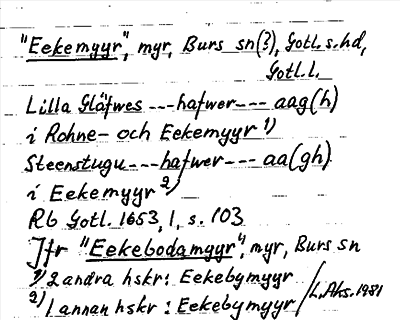 "Eekemyyr", myr, Burs sn(?), Gotl. s. hd,
Gotl. l.
Lilla Gläfwes --- hafwer --- aag(h)
i Rohne- och Eekemyyr 1)
Steenstugu --- hafwer --- aa(gh)
i Eekemyyr 2)
Rb Gotl. 1653, 1, s. 103
Jfr "Eekebodamyyr", myr, Burs sn
1) 2 andra hskr: Eekebymyyr
2) 1 annan hskr: Eekebymyyr / L. Aks. 1981